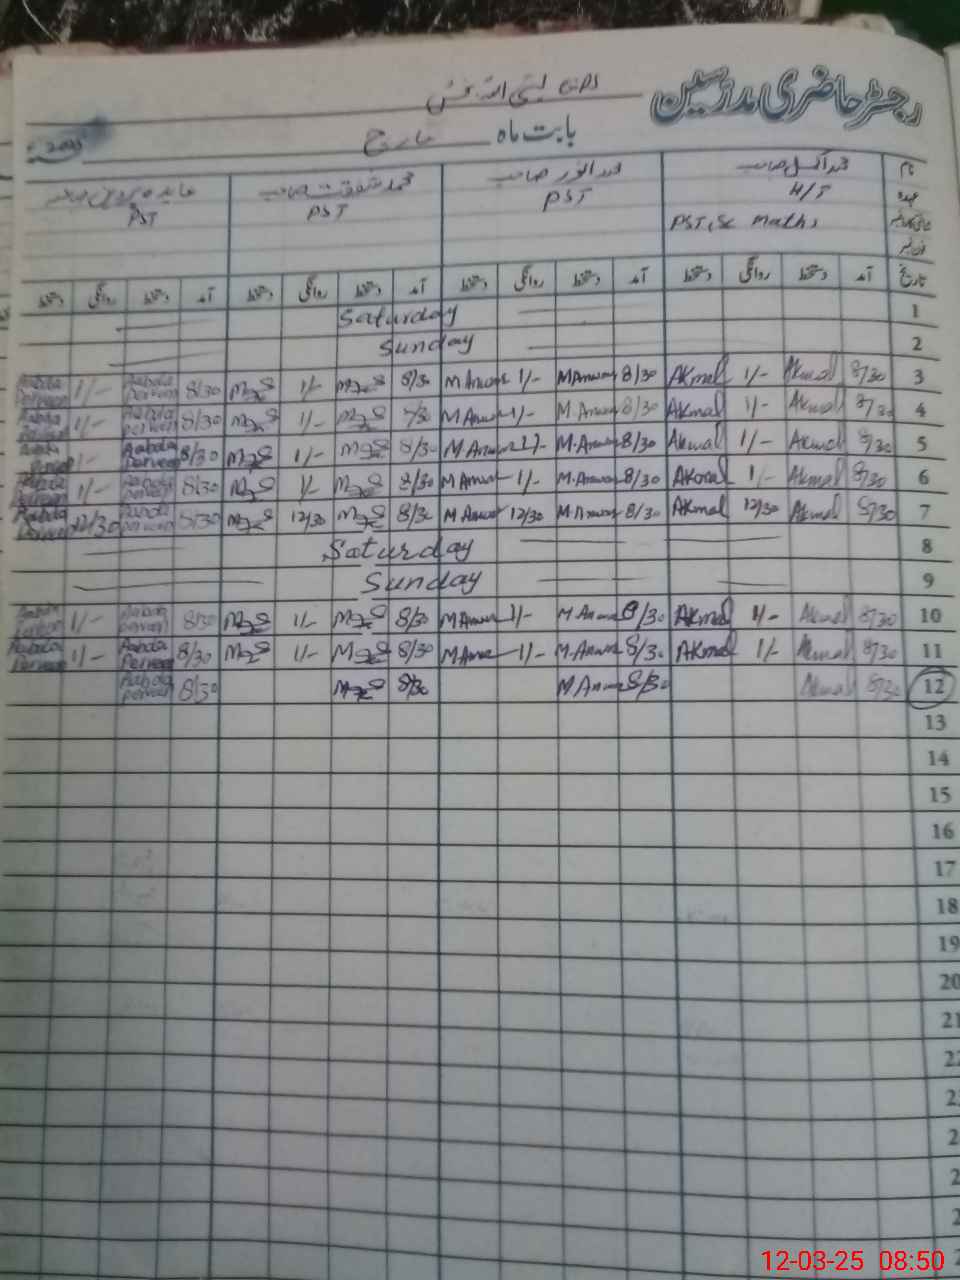 رجسٹر حاضری مدرسین
بابت ماہ مارچ 2025ء
نام محمد اکمل صاحب محمد انور صاحب محمد شفقت صاحب عابدہ پروین صاحبہ
عہدہ H/T PST PST PST
PST, Sc Maths
تاریخ آمد دستخط روانگی دستخط آمد دستخط روانگی دستخط آمد دستخط روانگی دستخط آمد دستخط روانگی دستخط
1 Saturday
2 Sunday
3 8/30 Akmal 1/- Akmal 8/30 M Anwar 1/- M Anwar 8/30 1/- 8/30 Aabda Perveen 1/- Aabda Perveen
4 8/30 Akmal 1/- Akmal 8/30 M. Anwar 1/- M Anwar 8/30 1/- 8/30 Aabda Perveen 1/- Aabda Perveen
5 8/30 Akmal 1/- Akmal 8/30 M. Anwar 1/- M Anwar 8/30 1/- 8/30 Aabda Perveen 1/- Aabda Perveen
6 8/30 Akmal 1/- Akmal 8/30 M. Anwar 1/- M Anwar 8/30 1/- 8/30 Aabda Perveen 1/- Aabda Perveen
7 8/30 Akmal 12/30 Akmal 8/30 M. Anwar 12/30 M Anwar 8/30 12/30 8/30 Aabda Perveen 12/30 Aabda Perveen
8 Saturday
9 Sunday
10 8/30 Akmal 1/- Akmal 8/30 M. Anwar 1/- M Anwar 8/30 1/- 8/30 Aabda Perveen 1/- Aabda Perveen
11 8/30 Akmal 1/- Akmal 8/30 M. Anwar 1/- M Anwar 8/30 1/- 8/30 Aabda Perveen 1/- Aabda Perveen
12 8/30 Akmal 8/30 M Anwar 8/30 8/30 Aabda Perveen
13
14
15
16
17
18
19
20
21
22
12-03-25 08:50